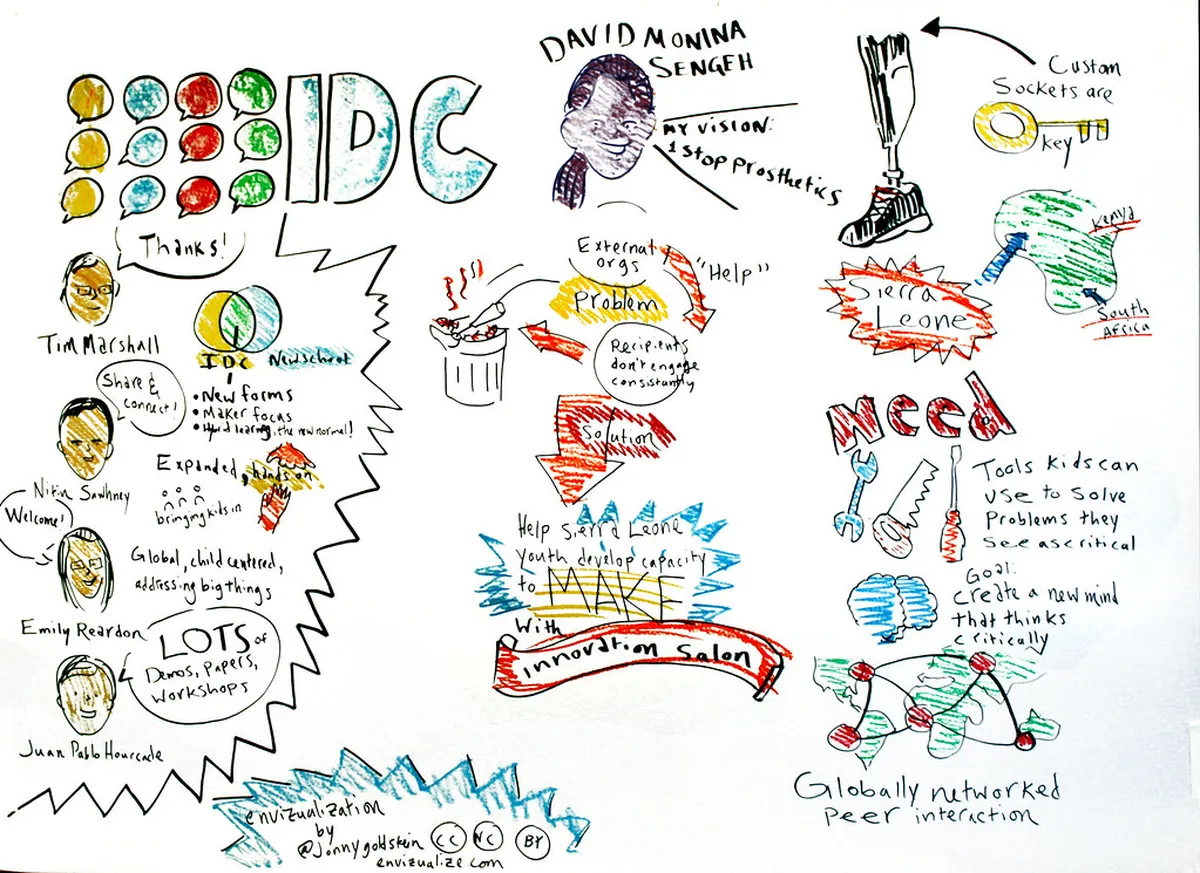 IDC
Thanks!
Tim Marshall
IDC
New school
• New forms
• Maker focus
• Hard learning, the new normal!
Share &
connect!
Nitin Sawhney
Expanded, hands on
bringing kids in
Welcome!
Global, child centered,
addressing big things
Emily Reardon
LOTS of
Demos, Papers,
Workshops
Juan Pablo Hourcade
envizualization
by
@jonnygoldstein
CC NC BY
envizualize.com
DAVID MONINA
SENGEH
MY VISION:
1 STOP PROSTHETICS
External
orgs
"Help"
Problem
Recipients
don't engage
consistantly
Solution
Help Sierra Leone
Youth develop capacity
to MAKE
With
innovation Salon
Custom
Sockets are
key
Kenya
South
Africa
Sierra
Leone
Need
Tools kids can
use to solve
Problems they
see as critical
Goal:
create a new mind
that thinks
critically
Globally networked
Peer interaction